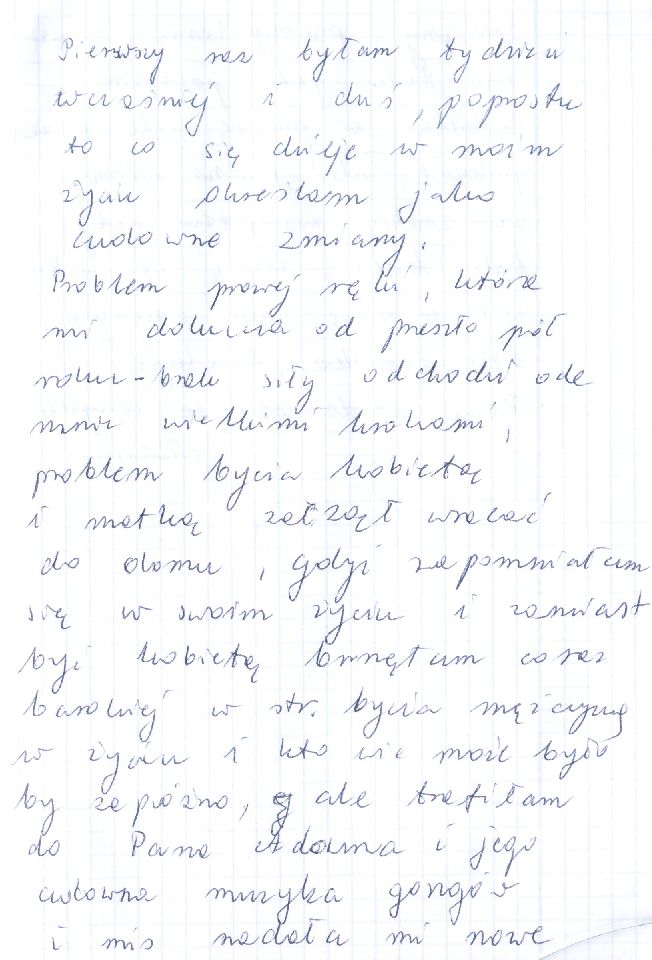 Pierwszy raz byłam tydzień
wcześniej i dziś, poprostu
to co się dzieje w moim
życiu określam jako
cudowne zmiany.
Problem prawej ręki, która
mi dokucza od przeszło pół
roku - brak siły odchodzi ode
mnie wielkimi krokami,
problem bycia kobietą
i matką zaczął wracać
do domu, gdyż zapomniałam
się w swoim życiu i zamiast
być kobietą brnęłam coraz
bardziej w str. bycia mężczyzną
w życiu i kto wie może było
by zapóźno, ale trafiłam
do Pana Adama i jego
cudowna muzyka gongów
i mis nadała mi nowe